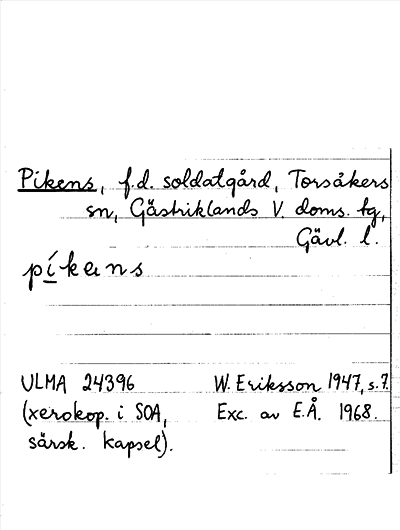 Pikens, f.d. soldatgård, Torsåkers
sn, Gästriklands V. doms. tg,
Gävl. l.
píkens
ULMA 24396 W. Eriksson 1947, s.7.
(xerokop. i SOA, Exc. av E.Å. 1968.
särsk. kapsel).